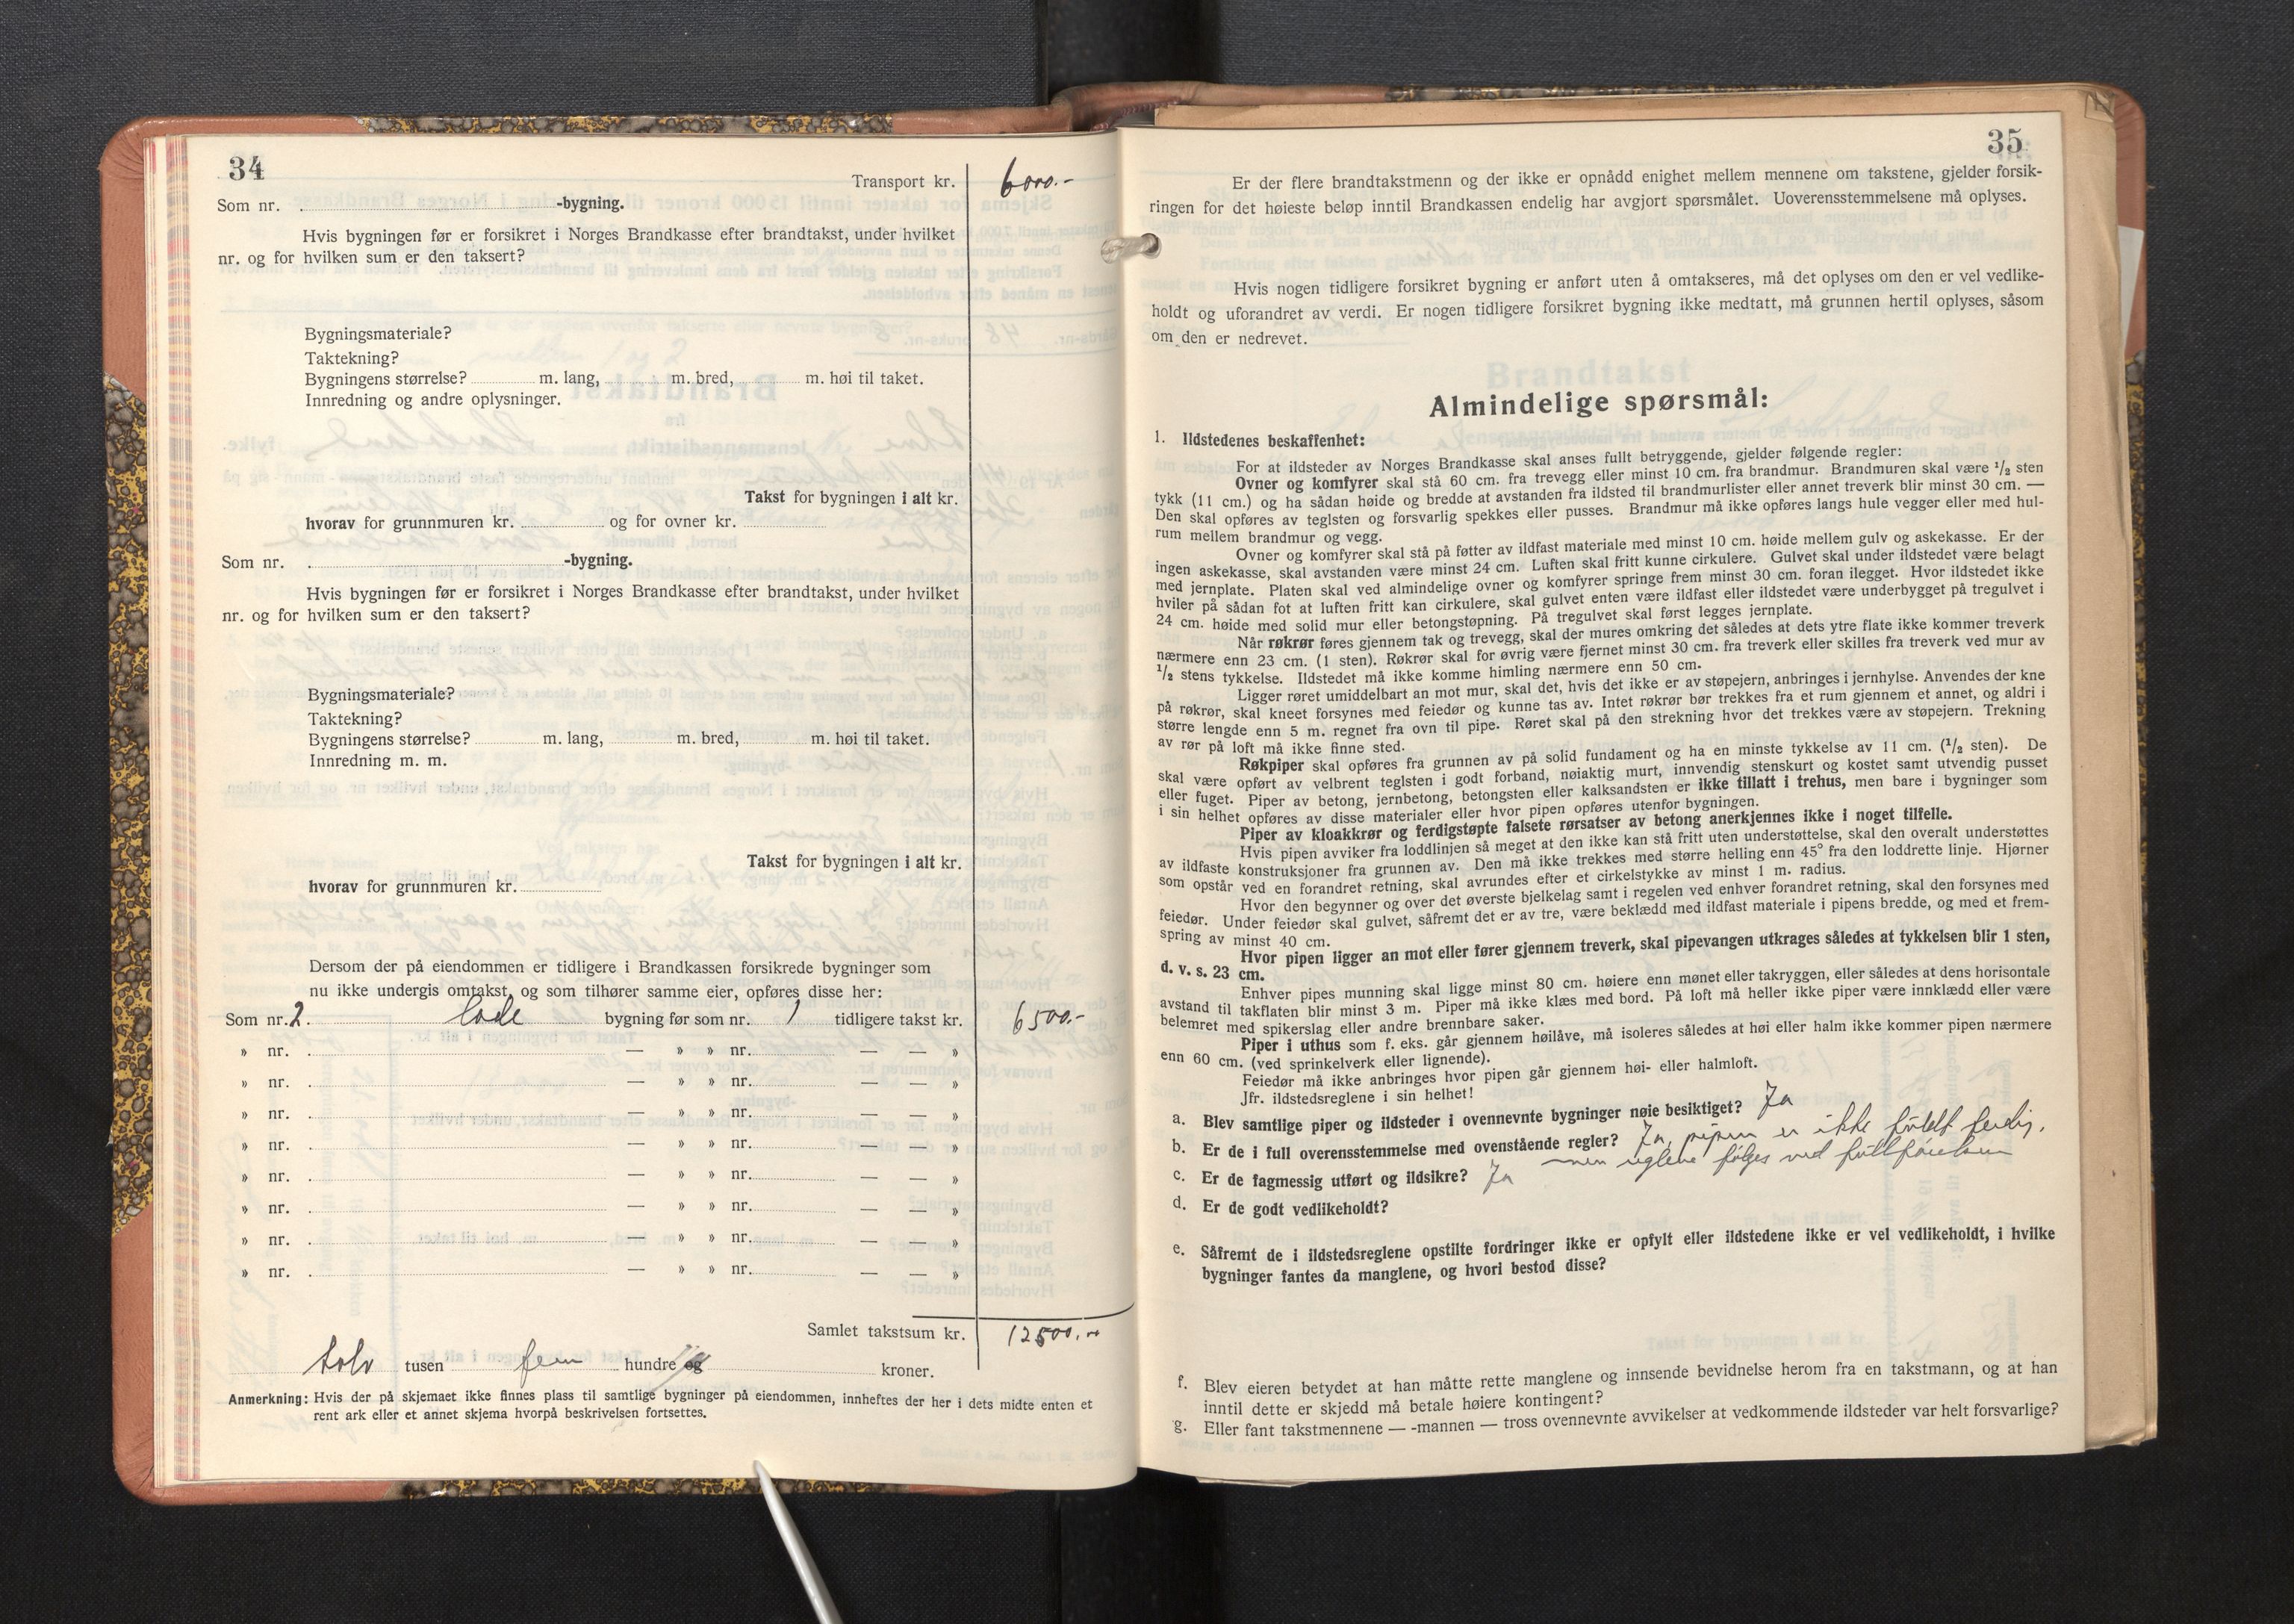 34
Transport kr. 6000.-
Som nr. -bygning.
Hvis bygningen før er forsikret i Norges Brandkasse efter brandtakst, under hvilket
nr. og for hvilken sum er den taksert?
Bygningsmateriale?
Taktekning?
Bygningens størrelse? m. lang, m. bred, m. høi til taket.
Innredning og andre oplysninger.
Takst for bygningen i alt kr.
hvorav for grunnmuren kr. og for ovner kr.
Som nr. -bygning.
Hvis bygningen før er forsikret i Norges Brandkasse efter brandtakst, under hvilket
nr. og for hvilken sum er den taksert?
Bygningsmateriale?
Taktekning?
Bygningens størrelse? m. lang, m. bred, m. høi til taket.
Innredning m. m.
Takst for bygningen i alt kr.
hvorav for grunnmuren kr.
Dersom der på eiendommen er tidligere i Brandkassen forsikrede bygninger som
nu ikke undergis omtakst, og som tilhører samme eier, opføres disse her:
Som nr. 2. løde bygning før som nr. 1 tidligere takst kr. 6500.-
» nr. — » » nr. — — »
» nr. — » » nr. — — »
» nr. — » » nr. — — »
» nr. — » » nr. — — »
» nr. — » » nr. — — »
» nr. — » » nr. — — »
» nr. — » » nr. — — »
» nr. — » » nr. — — »
Samlet takstsum kr. 12500.-
tolv tusen fem hundre og kroner.
Anmerkning: Hvis der på skjemaet ikke finnes plass til samtlige bygninger på eiendommen, innheftes der her i dets midte enten et
rent ark eller et annet skjema hvorpå beskrivelsen fortsettes.
35
Er der flere brandtakstmenn og der ikke er opnådd enighet mellem mennene om takstene, gjelder forsik-
ringen for det høieste beløp inntil Brandkassen endelig har avgjort spørsmålet. Uoverensstemmelsene må oplyses.
Hvis nogen tidligere forsikret bygning er anført uten å omtakseres, må det oplyses om den er vel vedlike-
holdt og uforandret av verdi. Er nogen tidligere forsikret bygning ikke medtatt, må grunnen hertil oplyses, såsom
om den er nedrevet.
Almindelige spørsmål:
1. Ildstedenes beskaffenhet:
For at ildsteder av Norges Brandkasse skal anses fullt betryggende, gjelder følgende regler:
Ovner og komfyrer skal stå 60 cm. fra trevegg eller minst 10 cm. fra brandmur. Brandmuren skal være 1/2 sten
tykk (11 cm.) og ha sådan høide og bredde at avstanden fra ildsted til brandmurlister eller annet treverk blir minst 30 cm. —
Den skal opføres av teglsten og forsvarlig spekkes eller pusses. Brandmur må ikke opføres langs hule vegger eller med hul-
rum mellem brandmur og vegg.
Ovner og komfyrer skal stå på føtter av ildfast materiale med minst 10 cm. høide mellem gulv og askekasse. Er der
ingen askekasse, skal avstanden være minst 24 cm. Luften skal fritt kunne cirkulere. Gulvet skal under ildstedet være belagt
med jernplate. Platen skal ved almindelige ovner og komfyrer springe frem minst 30 cm. foran ilegget. Hvor ildstedet ikke
hviler på sådan fot at luften fritt kan cirkulere, skal gulvet enten være ildfast eller ildstedet være underbygget på tregulvet i
24 cm. høide med solid mur eller betongstøpning. På tregulvet skal først legges jernplate.
Når røkrør føres gjennem tak og trevegg, skal der mures omkring det således at dets ytre flate ikke kommer treverk
nærmere enn 23 cm. (1 sten). Røkrør skal for øvrig være fjernet minst 30 cm. fra treverk eller skilles fra treverk ved mur av
1/2 stens tykkelse. Ildstedet må ikke komme himling nærmere enn 50 cm.
Ligger røret umiddelbart an mot mur, skal det, hvis det ikke er av støpejern, anbringes i jernhylse. Anvendes der kne
på røkrør, skal kneet forsynes med feiedør og kunne tas av. Intet røkrør bør trekkes fra et rum gjennem et annet, og aldri i
større lengde enn 5 m. regnet fra ovn til pipe. Røret skal på den strekning hvor det trekkes være av støpejern. Trekning
av rør på loft må ikke finne sted.
Røkpiper skal opføres fra grunnen av på solid fundament og ha en minste tykkelse av 11 cm. (1/2 sten). De
skal være opført av velbrent teglsten i godt forband, nøiaktig murt, innvendig stenskurt og kostet samt utvendig pusset
eller fuget. Piper av betong, jernbetong, betongsten eller kalksandsten er ikke tillatt i trehus, men bare i bygninger som
i sin helhet opføres av disse materialer eller hvor pipen opføres utenfor bygningen.
Piper av kloakkrør og ferdigstøpte falsete rørsatser av betong anerkjennes ikke i noget tilfelle.
Hvis pipen avviker fra loddlinjen så meget at den ikke kan stå fritt uten understøttelse, skal den overalt understøttes
av ildfaste konstruksjoner fra grunnen av. Den må ikke trekkes med større helling enn 45° fra den loddrette linje. Hjørner
som opstår ved en forandret retning, skal avrundes efter et cirkelstykke av minst 1 m. radius.
Hvor den begynner og over det øverste bjelkelag samt i regelen ved enhver forandret retning, skal den forsynes med
feiedør. Under feiedør skal gulvet, såfremt det er av tre, være beklædd med ildfast materiale i pipens bredde, og med et frem-
spring av minst 40 cm.
Hvor pipen ligger an mot eller fører gjennem treverk, skal pipevangen utkrages således at tykkelsen blir 1 sten,
d. v. s. 23 cm.
Enhver pipes munning skal ligge minst 80 cm. høiere enn mønet eller takryggen, eller således at dens horisontale
avstand til takflaten blir minst 3 m. Piper må ikke klæs med bord. På loft må heller ikke piper være innklædd eller være
belemret med spikerslag eller andre brennbare saker.
Piper i uthus som f. eks. går gjennem høilåve, må isoleres således at høi eller halm ikke kommer pipen nærmere
enn 60 cm. (ved sprinkelverk eller lignende).
Feiedør må ikke anbringes hvor pipen går gjennem høi- eller halmloft.
Jfr. ildstedsreglene i sin helhet!
a. Blev samtlige piper og ildsteder i ovennevnte bygninger nøie besiktiget? Ja
b. Er de i full overensstemmelse med ovenstående regler? Ja, pipen er ikke fuldt ferdig,
men reglene følges ved
c. Er de fagmessig utført og ildsikre? Ja
d. Er de godt vedlikeholdt?
e. Såfremt de i ildstedsreglene opstilte fordringer ikke er opfylt eller ildstedene ikke er vel vedlikeholdt, i hvilke
bygninger fantes da manglene, og hvori bestod disse?
f. Blev eieren betydet at han måtte rette manglene og innsende bevidnelse herom fra en takstmann, og at han
inntil dette er skjedd må betale høiere kontingent?
g. Eller fant takstmennene — -mannen — tross ovennevnte avvikelser at vedkommende ildsteder var helt forsvarlige?